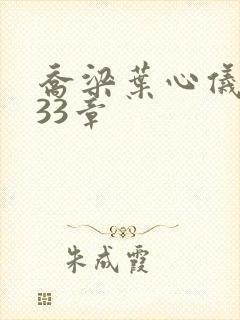 乔梁葉心儀
33章
朱成霞